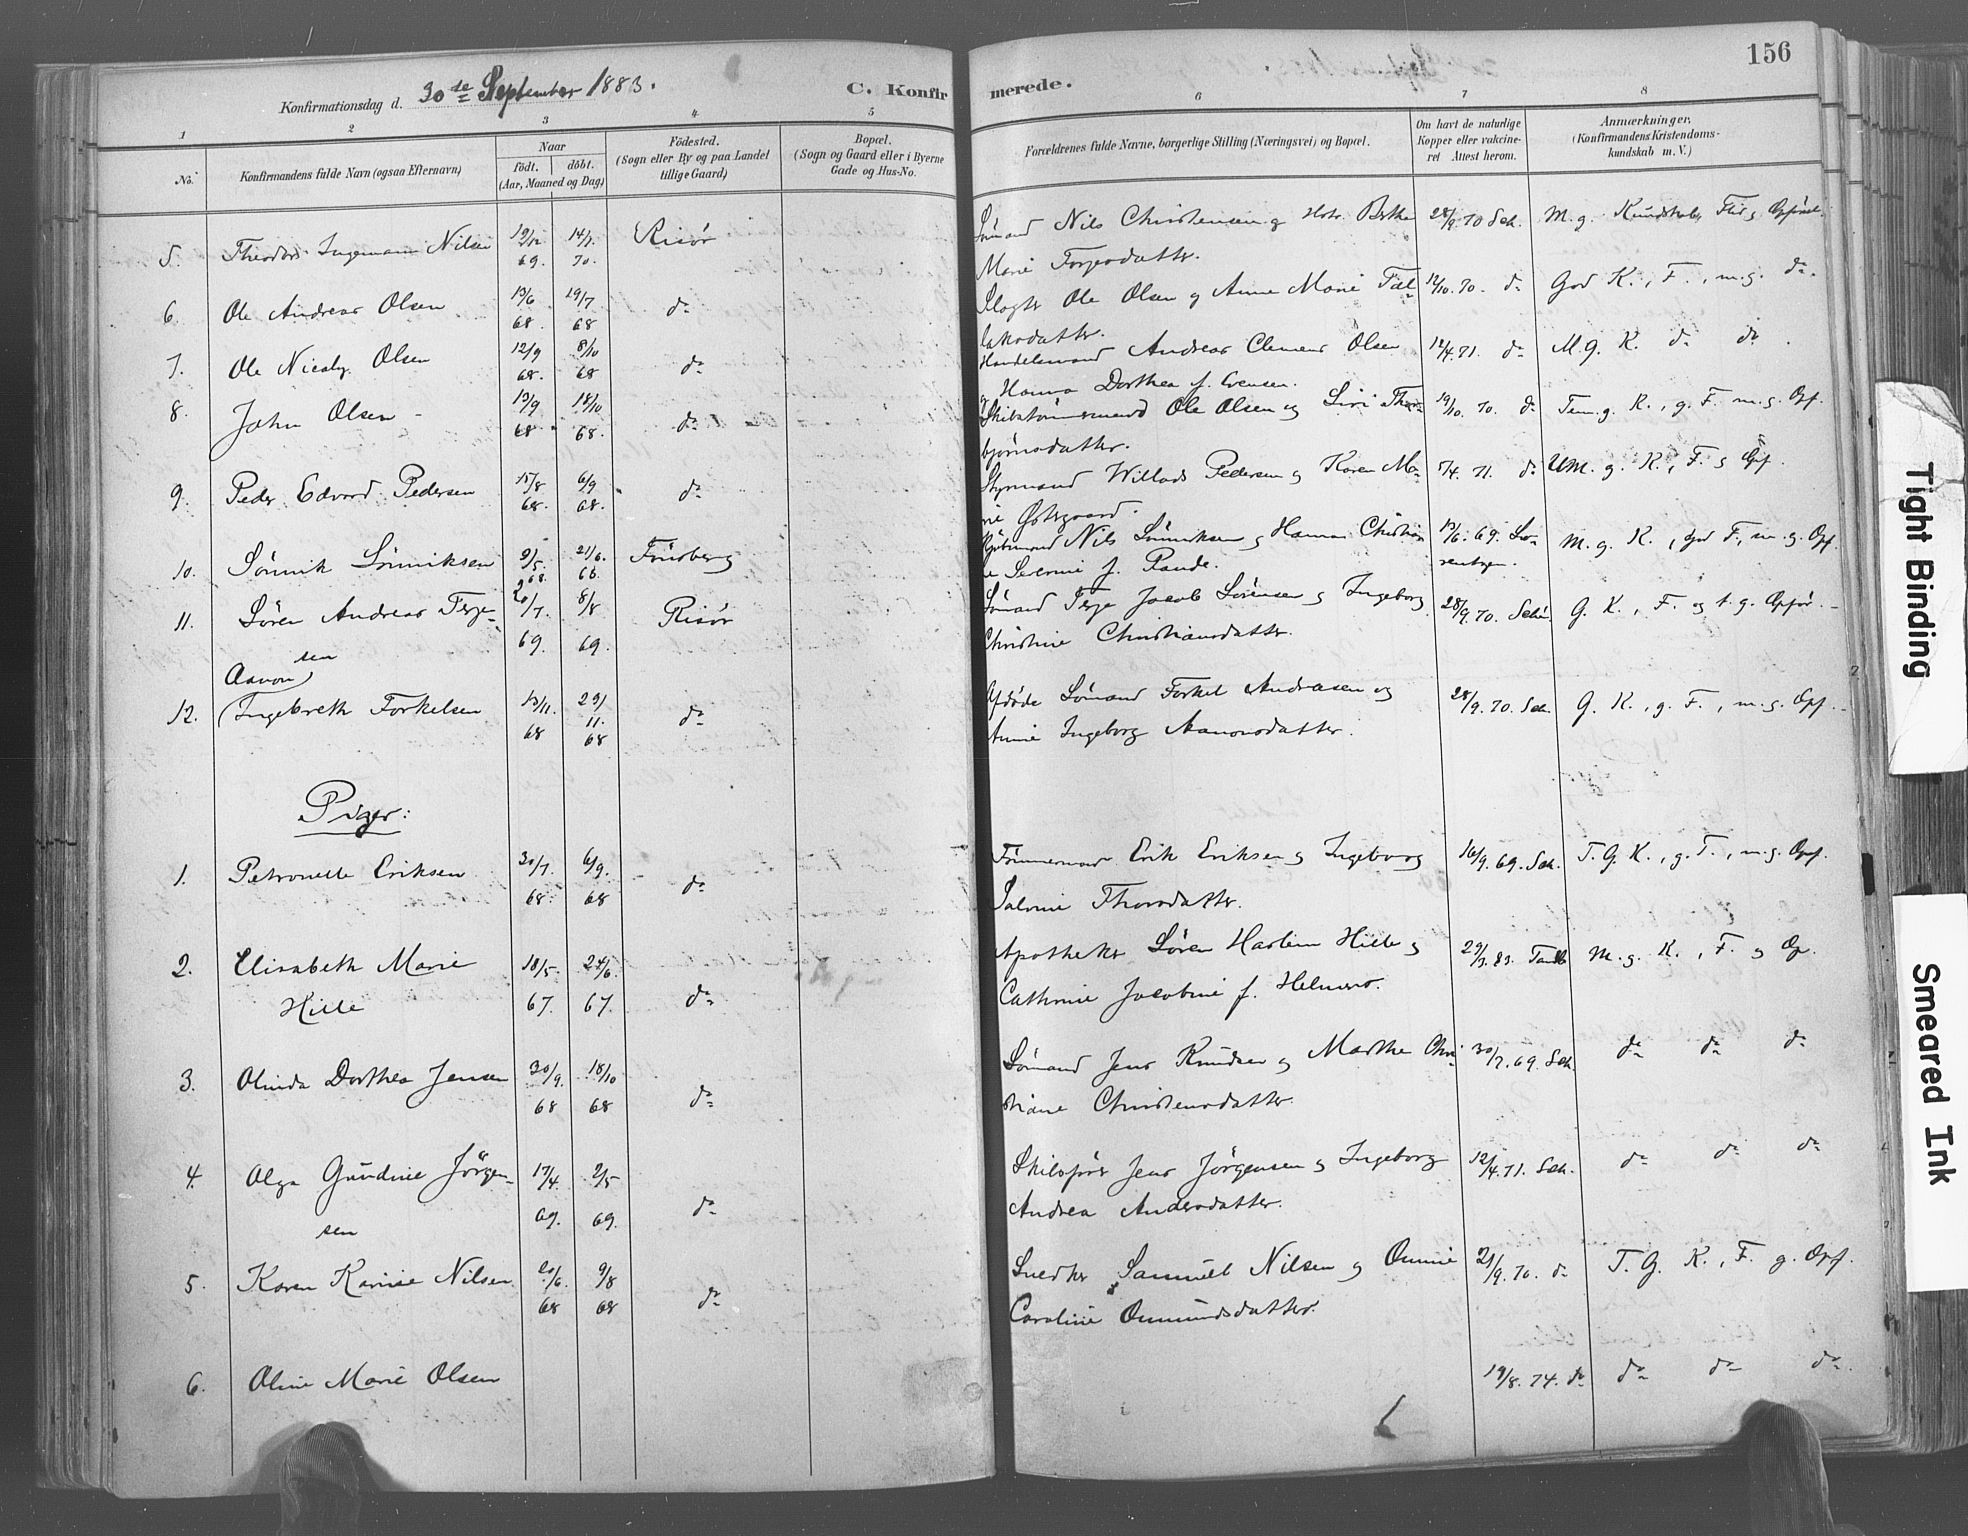 156
Konfirmationsdag d. 30te September 1883.
C. Konfirmerede.
1 2 3 4 5 6 7 8
No.
Konfirmandens fulde Navn (ogsaa Efternavn)
Naar
födt. döbt.
(Aar, Maaned og Dag)
Födested.
(Sogn eller By og paa Landet
tillige Gaard)
Bopæl.
(Sogn og Gaard eller i Byerne
Gade og Hus-No.
Forældrenes fulde Navne, borgerlige Stilling (Næringsvei) og Bopæl.
Om havt de naturlige
Kopper eller vakcine-
ret Attest herom.
Anmærkninger.
(Konfirmandens Kristendoms-
kundskab m. V.)
5. Theodor Ingemann Nilsen 19/12 69. 14/7 70. Risør
Sömand Nils Christensen og Hstr. Berthe
Marie Torjersdatter.
28/9 70 Sch. M. g. Kundskab, Flid og Opførsel.
6. Ole Andreas Olsen 13/6 68. 19/7 68 do
Slagter Ole Olsen og Anne Marie Tal-
laksdatter.
12/10. 70. do God K., F., m. g. do
7. Ole Nicolay Olsen 12/9 68. 8/10 68 do
Handelsmand Andreas Clemens Olsen
og Hanna Dorthea f. Evensen.
12/4. 71. do M. g. K. do do
8. John Olsen 13/9 68. 18/10 68. do
Skibstømmermand Ole Olsen og Siri Thor-
bjørnsdatter.
19/10. 70. do Tem. g. K., g. F. m. g. Opf.
9. Peder Edvard Pedersen 15/8 68. 6/9 68. do
Styrmand Willads Pedersen og Karen Ma-
rie Østergaard.
/4. 71. do M. g. K., F. og Opf.
10. Sönnik Sönniksen 9/5 68. 21/6. 68.
Kjøbmand Nils Sönniksen og Hanna Christian
e Severine f. Paude.
13/6. 69. M. g. K., God F., m. g. Opf.
11. Sören Andreas Terje-
sen 20/7 69. 8/8 69. Risør
Sömand Terje Jacob Sörensen og Ingeborg
Christine Christiansdatter.
28/9. 70. G. K., F. og t. g. Opför.
Aanon
12. Ingebreth Torkelsen 13/11. 68 29/11. 68 do
Afdöde Sömand Torkel Andreasen og
Anne Ingeborg Aanonsdatter.
28/9. 70. Sch. G. K., g. F., m. g. Opf.
Piger:
1. Petronelle Eriksen 30/7. 68. 6/9. 68 do
Tömmermand Erik Eriksen og Ingeborg
Salomie Thorsdatter.
16/9. 69. Sch. T. G. K., g. F., m. g. Opf.
2. Elisabeth Marie
Hille 18/5. 67. 24/6. 67. do
Apotheker Sören Harlem Hille og
Cathrine Jacobine f. Helmers.
29/3. 83. M. g. K., F. og Op.
3. Olinda Dorthea Jensen 30/9. 68 18/10 68 do
Sömand Jens Knudsen og Marthe Chri-
stiane Christensdatter.
30/7. 69. Sch. do do do
4. Olga Gundine Jörgen-
sen 17/4. 69. 2/5 69. do
Skibsförer Jens Jörgensen og Ingeborg
Andrea Andersdatter.
12/4. 71. Sch. do do do
5. Karen Karine Nilsen 20/6. 68 9/8 68 do
Snedker Samuel Nilsen og Omine
Caroline Omundsdatter.
21/9. 70. do T. G. K., F. g. Opf.
6. Oline Marie Olsen
19/8. 74. do do do do
Tight Binding
Smeared Ink